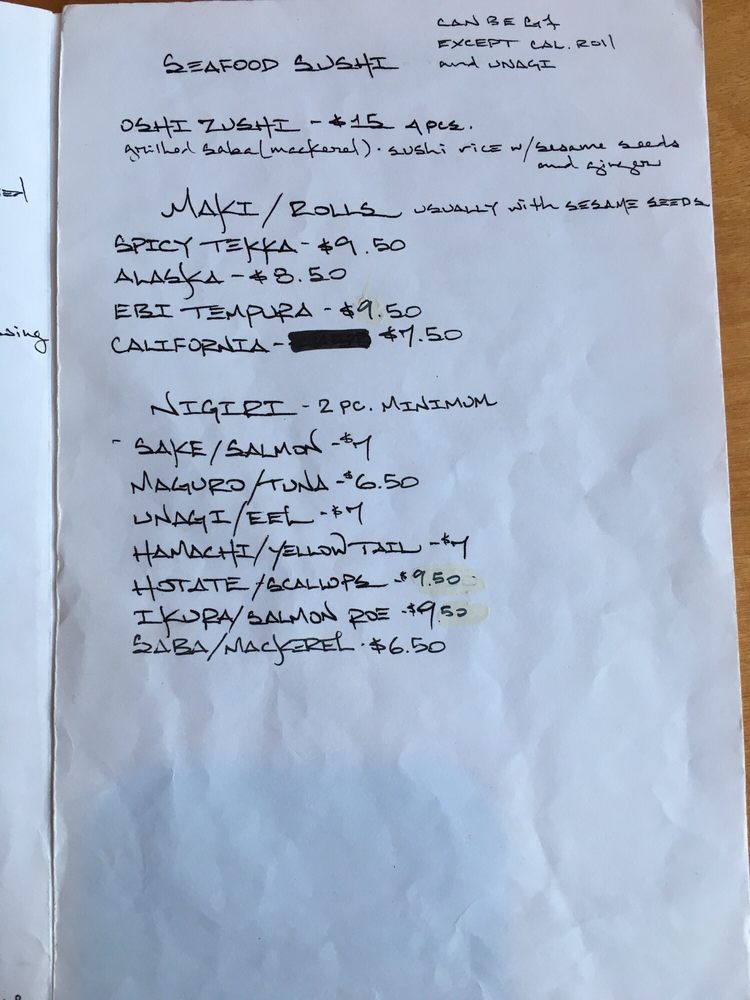 CAN BE GF
EXCEPT CAL. ROll
and UNAGI
SEAFOOD SUSHI
OSHI ZUSHI - $15 4 pcs.
grilled saba (mackerel) · sushi rice w/ sesame seeds
and ginger
MAKI / ROLLS USUALLY with SESAME SEEDS
SPICY TEKKA - $9.50
ALASKA - $8.50
EBI TEMPURA - $9.50
CALIFORNIA - $7.50
NIGIRI - 2 PC. MINIMUM
- SAKE/SALMON - $7
MAGURO/TUNA - $6.50
UNAGI/EEL - $7
HAMACHI/YELLOW TAIL - $7
HOTATE/SCALLOPS - $9.50
IKURA/SALMON ROE - $9.50
SABA/MACKEREL · $6.50